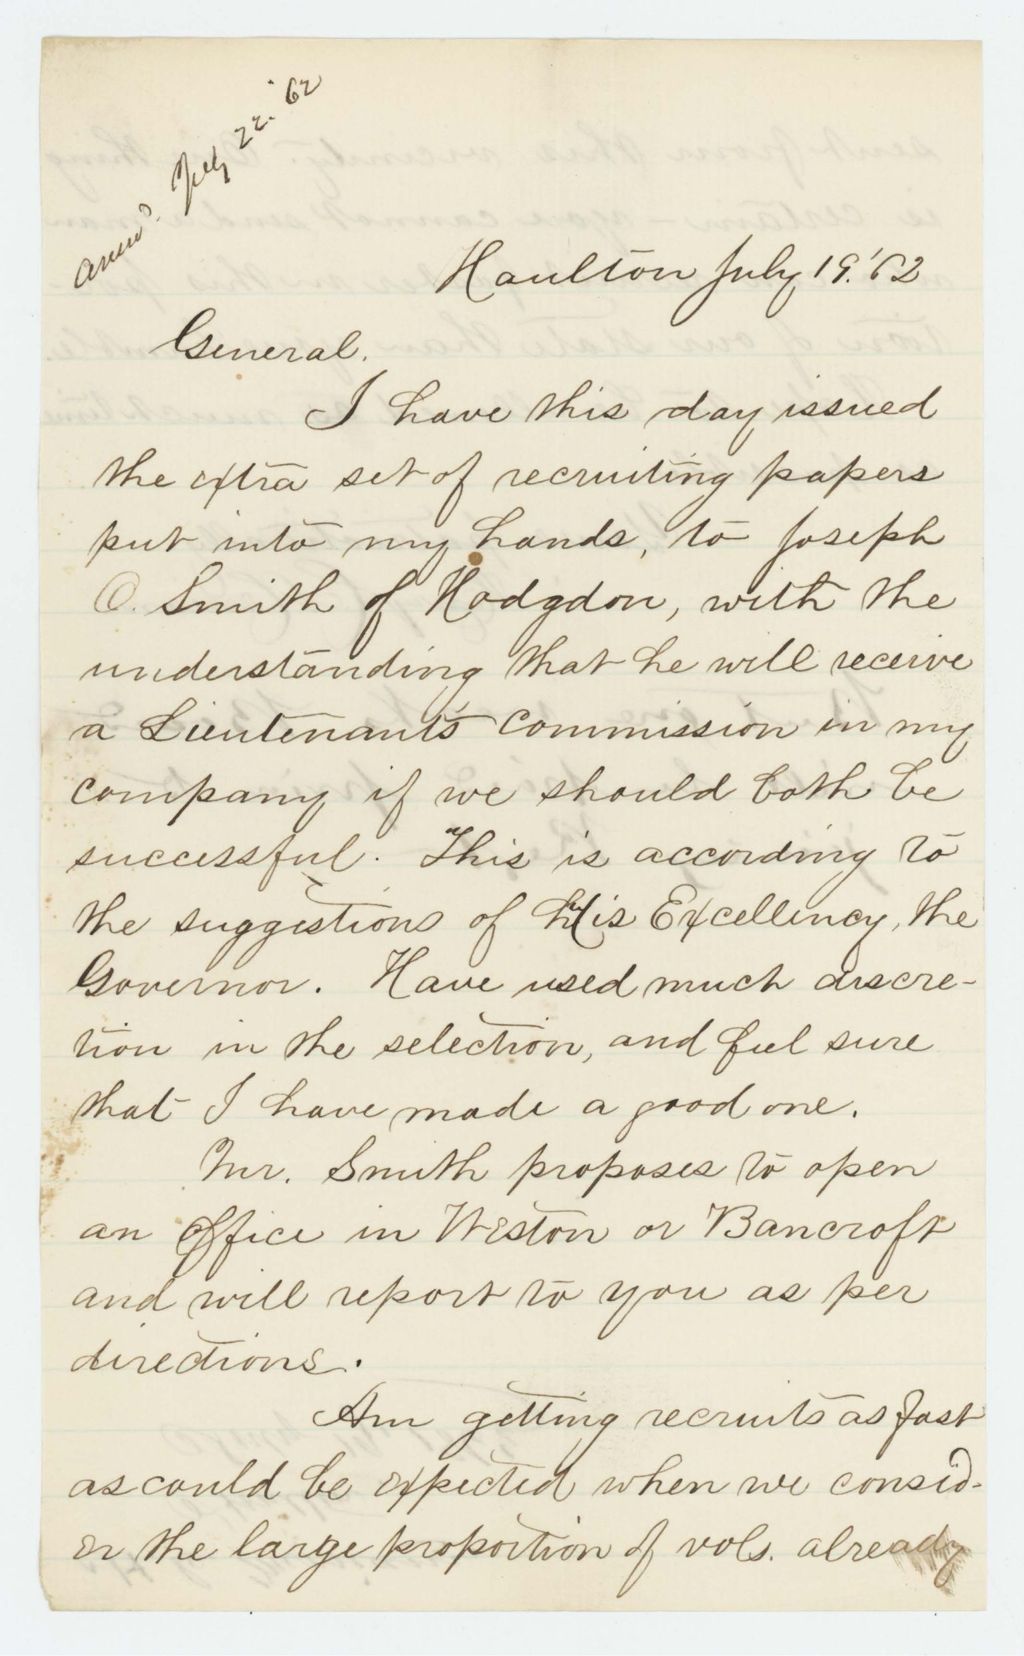 Answd. July 22. '62
Houlton July 19. '62
General.
I have this day issued
the extra set of recruiting papers
put into my hands, to Joseph
O. Smith of Hodgdon, with the
understanding that he will receive
a Lieutenants Commission in my
company if we should both be
successful. This is according to
the suggestions of His Excellency, the
Governor. Have used much discre-
tion in the selection, and feel sure
that I have made a good one.
Mr. Smith proposes to open
an Office in Weston or Bancroft
and will report to you as per
directions.
Am getting recruits as fast
as could be expected when we consid-
er the large proportion of vols. already